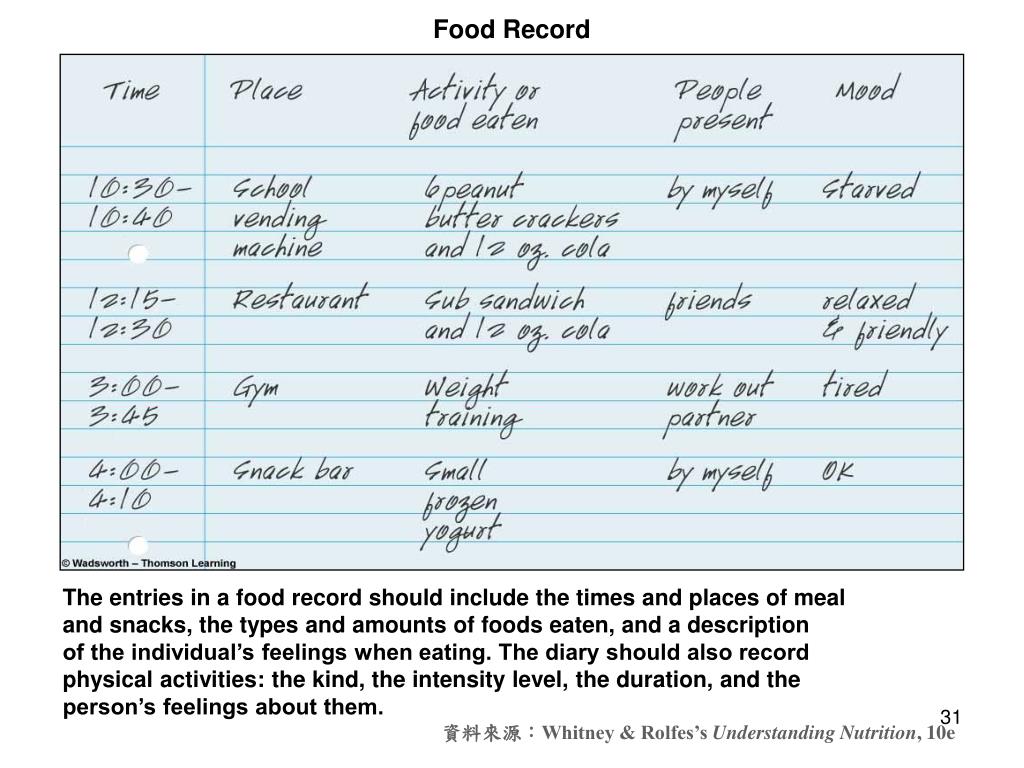 Food Record
Time Place Activity or People Mood
food eaten present
10:30- School 6 peanut by myself starved
10:40 vending butter crackers
machine and 12 oz. cola
12:15- Restaurant Sub sandwich friends relaxed
12:30 and 12 oz. cola & friendly
3:00- Gym Weight work out tired
3:45 training partner
4:00- Snack bar Small by myself OK
4:10 frozen
yogurt
© Wadsworth – Thomson Learning
The entries in a food record should include the times and places of meal
and snacks, the types and amounts of foods eaten, and a description
of the individual's feelings when eating. The diary should also record
physical activities: the kind, the intensity level, the duration, and the
person's feelings about them.
31
資料來源：Whitney & Rolfes's Understanding Nutrition, 10e